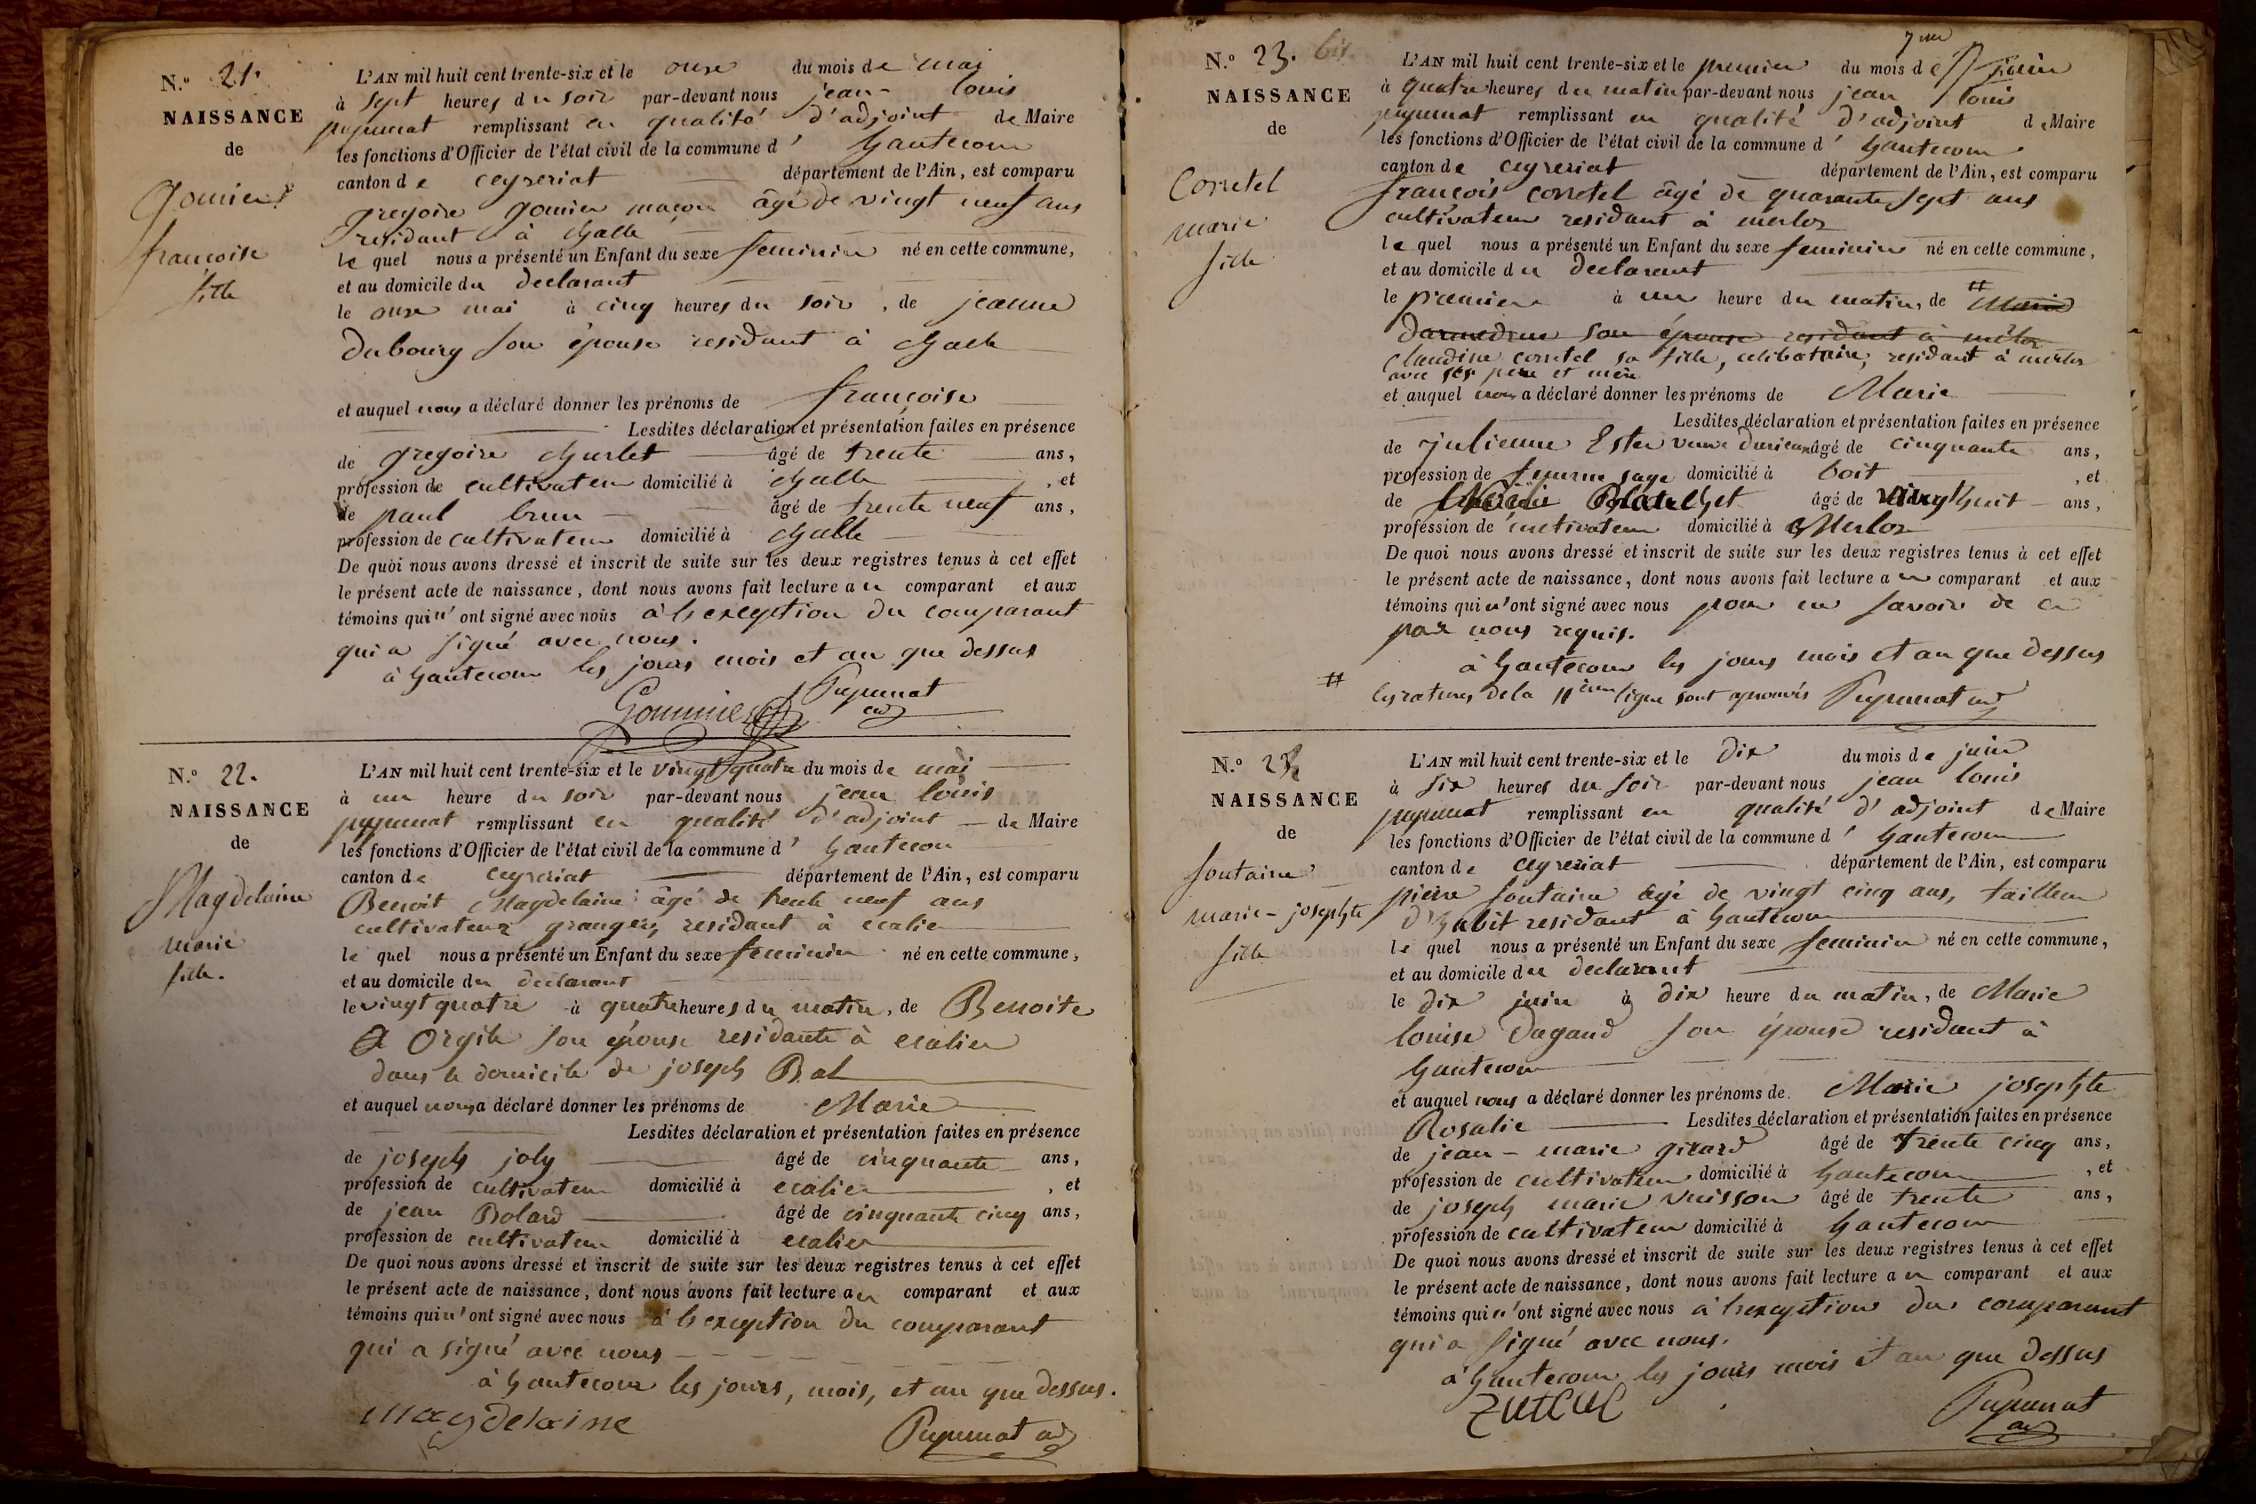 N.° 21.
NAISSANCE
de
Gomier
francoise
fille
L'AN mil huit cent trente-six et le onze du mois de mai
à sept heures du soir par-devant nous jean-louis
pupunat remplissant en qualité d'adjoint de Maire
les fonctions d'Officier de l'état civil de la commune d' hautecour
canton de ceyseriat département de l'Ain, est comparu
gregoire gomier maçon âgé de vingt neuf ans
residant à challe
le quel nous a présenté un Enfant du sexe feminin né en cette commune,
et au domicile du declarant
le onze mai à cinq heures du soir, de jeanne
dubourg son épouse residant à challe
et auquel nous a déclaré donner les prénoms de françoise
Lesdites déclaration et présentation faites en présence
de gregoire churlet âgé de trente ans,
profession de cultivateur domicilié à challe, et
de paul brun âgé de trente neuf ans,
profession de cultivateur domicilié à challe
De quoi nous avons dressé et inscrit de suite sur les deux registres tenus à cet effet
le présent acte de naissance, dont nous avons fait lecture au comparant et aux
témoins qui n'ont signé avec nous à l'exception du comparant
qui a signé avec nous.
à hautecour les jours mois et an que dessus
Pupunat
Gommier adj
N.° 22.
NAISSANCE
de
Magdelaine
marie
fille.
L'AN mil huit cent trente-six et le vingt quatre du mois de mai
à un heure du soir par-devant nous jean louis
pupunat remplissant en qualité d'adjoint de Maire
les fonctions d'Officier de l'état civil de la commune d' hautecour
canton de ceyseriat département de l'Ain, est comparu
Benoit Magdelaine âgé de trente neuf ans
cultivateur granger, residant à
le quel nous a présenté un Enfant du sexe feminin né en cette commune,
et au domicile du declarant
le vingt quatre à quatre heures du matin, de Benoite
Orgile son épouse residante à
dans le domicile de joseph Bal
et auquel nous a déclaré donner les prénoms de Marie
Lesdites déclaration et présentation faites en présence
de joseph joly âgé de cinquante ans,
profession de cultivateur domicilié à, et
de jean Bolard âgé de cinquante cinq ans,
profession de cultivateur domicilié à
De quoi nous avons dressé et inscrit de suite sur les deux registres tenus à cet effet
le présent acte de naissance, dont nous avons fait lecture au comparant et aux
témoins qui n'ont signé avec nous à l'exception du comparant
qui a signé avec nous
à hautecour les jours, mois, et an que dessus.
magdelaine Pupunat adj
N.° 23. bis
NAISSANCE
de
Corretel
marie
fille
L'AN mil huit cent trente-six et le premier du mois de juin
à quatre heures du matin par-devant nous jean louis
pupunat remplissant en qualité d'adjoint de Maire
les fonctions d'Officier de l'état civil de la commune d' hautecour
canton de ceyseriat département de l'Ain, est comparu
françois corretel âgé de quarante sept ans
cultivateur residant à merloz
le quel nous a présenté un Enfant du sexe feminin né en cette commune,
et au domicile du declarent
le premier à une heure du matin, de # Marie
son épouse residant à
Claudine corretel sa fille, celibataire, residant à merloz
avec ses père et mère
et auquel nous a déclaré donner les prénoms de Marie
Lesdites déclaration et présentation faites en présence
de julienne Ester veuve âgé de cinquante ans,
profession de femme sage domicilié à boit, et
de âgé de vingt huit ans,
profession de cultivateur domicilié à Merloz
De quoi nous avons dressé et inscrit de suite sur les deux registres tenus à cet effet
le présent acte de naissance, dont nous avons fait lecture au comparant et aux
témoins qui n'ont signé avec nous pour ne savoir de ce
par nous requis.
à hautecour les jours mois et an que dessus
# les ratures de la 11ème ligne sont aprouvés Pupunat adj
N.°
NAISSANCE
de
fontaine
marie-josephte
fille
L'AN mil huit cent trente-six et le dix du mois de juin
à six heures du soir par-devant nous jean louis
pupunat remplissant en qualité d'adjoint de Maire
les fonctions d'Officier de l'état civil de la commune d' hautecour
canton de ceyseriat département de l'Ain, est comparu
pierre fontaine âgé de vingt cinq ans, tailleur
d'habit residant à hautecour
le quel nous a présenté un Enfant du sexe feminin né en cette commune,
et au domicile du declarant
le dix juin à dix heure du matin, de Marie
louise dagand son épouse residant à
hautecour
et auquel nous a déclaré donner les prénoms de Marie josephte
Rosalie Lesdites déclaration et présentation faites en présence
de jean-marie girard âgé de trente cinq ans,
profession de cultivateur domicilié à hautecour, et
de joseph marie vuisson âgé de trente ans,
profession de cultivateur domicilié à hautecour
De quoi nous avons dressé et inscrit de suite sur les deux registres tenus à cet effet
le présent acte de naissance, dont nous avons fait lecture au comparant et aux
témoins qui n'ont signé avec nous à l'exception du comparant
qui a signé avec nous.
à hautecour les jours mois et an que dessus
Pupunat
adj